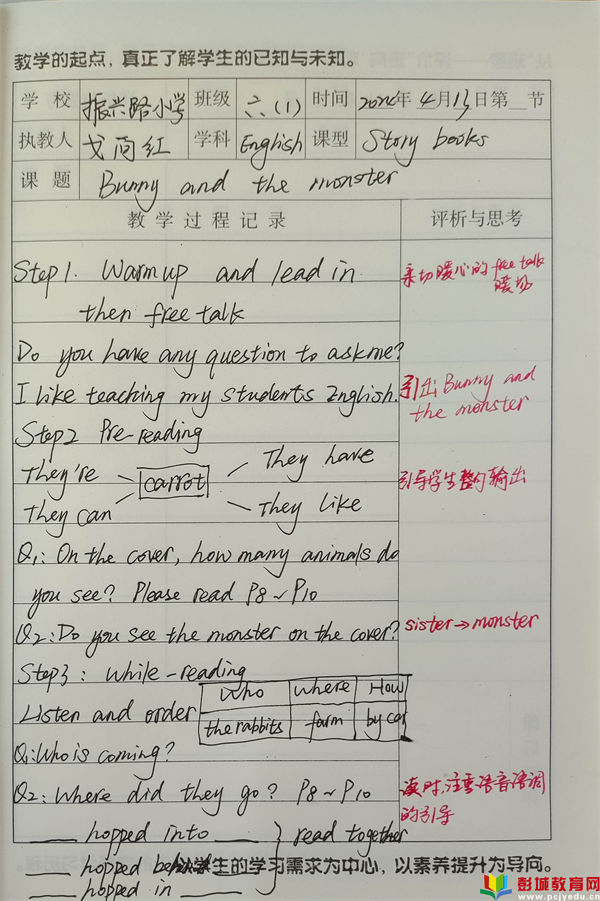 教学的起点,真正了解学生的已知与未知。
学 校 振兴路小学 班级 六.(1) 时间 2024年4月13日第__节
执教人 戈商红 学科 English 课型 Story books
课 题 Bunny and the monster
教 学 过 程 记 录 评析与思考
Step1. Warm up and lead in 亲切暖心的free talk
then free talk 暖场
Do you have any question to ask me?
I like teaching my students English. 引出Bunny and
the monster
Step2 Pre-reading
They're carrot They have 引导学生整句输出
They can They like
Q1: On the cover, how many animals do
you see? Please read P8~P10
Q2: Do you see the monster on the cover? sister→monster
Step3: While-reading
Who where How
Listen and order the rabbits farm by car
Q1: Who is coming?
Q2: Where did they go? P8~P10 读时,注重语音语调
的引导
___ hopped into ___ } read together
___ hopped
以学生的学习需求为中心,以素养提升为导向。
___ hopped in ___
彭城教育网
www.pcjyedu.cn